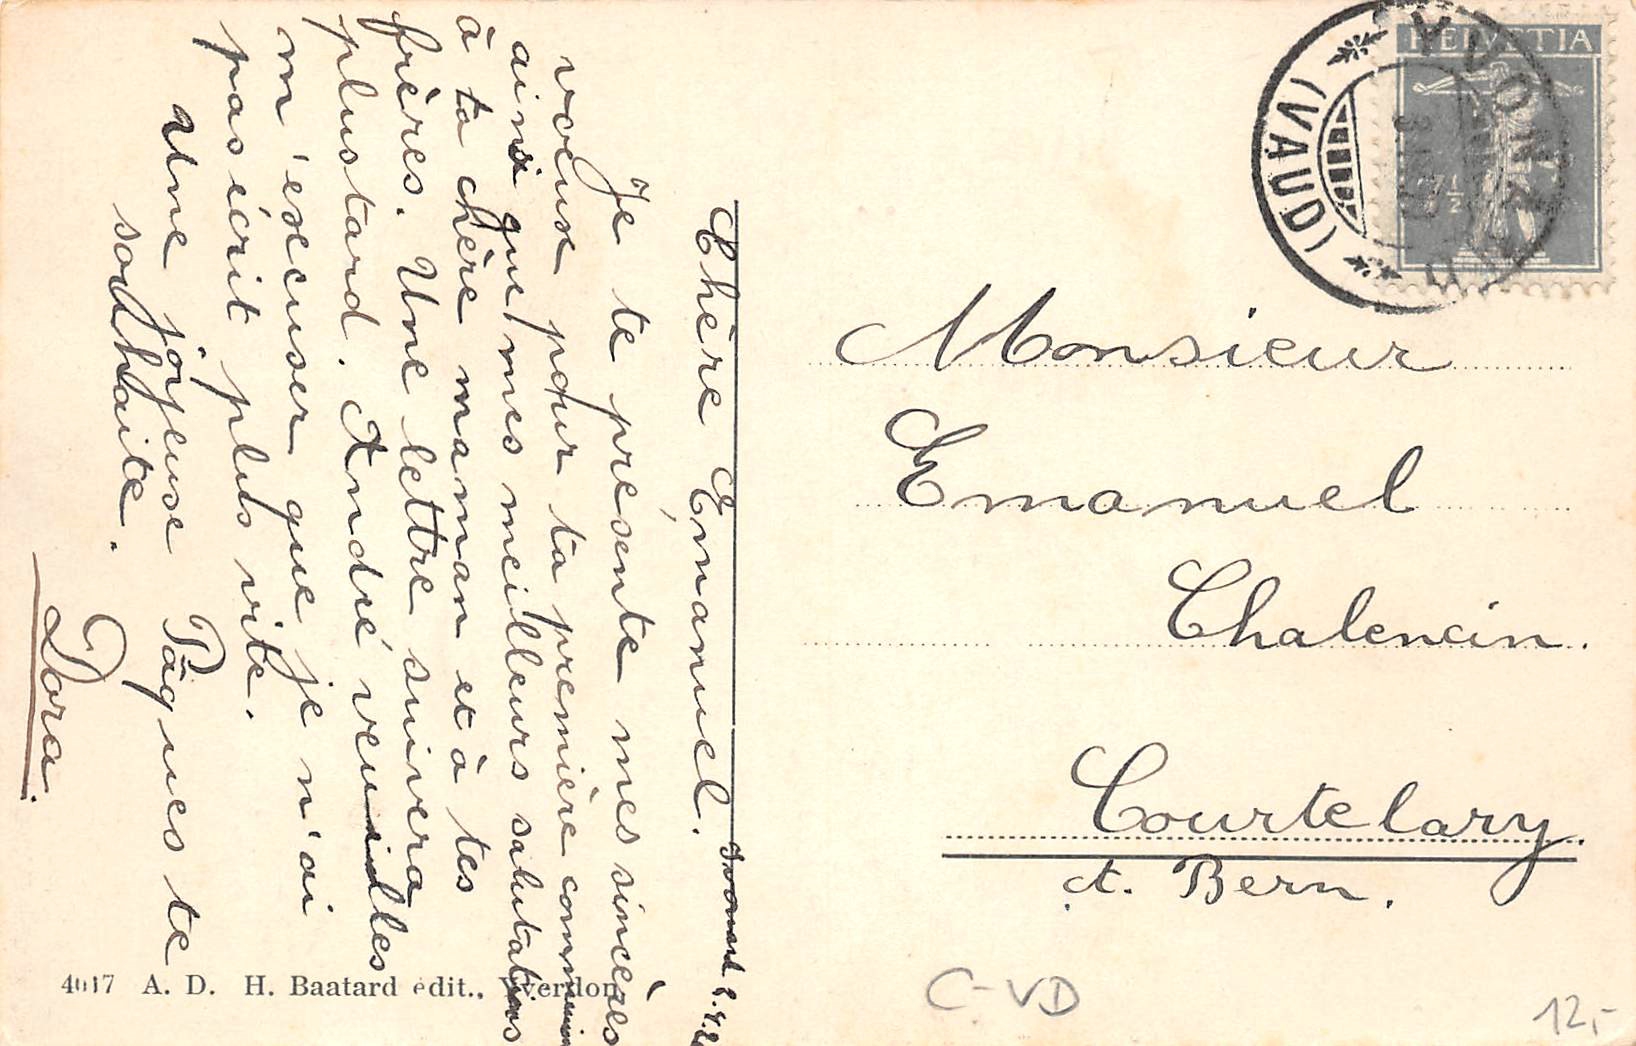 Chère Émanuel.
Je te présente mes sincères
voeux pour ta première communion
ainsi que mes meilleurs salutations
à ta chère maman et à tes
frères. Une lettre suivera
plus tard. André veuilles
m'excuser que je n'ai
pas écrit plus vite.
Une joyeuse Pâques te
souhaite.
Dora.
HELVETIA
YVONAND
(VAUD)
Monsieur
Emanuel
Chalencin.
Courtelary.
ct. Bern.
4017 A. D. H. Baatard édit., Yverdon
C-VD
12,-